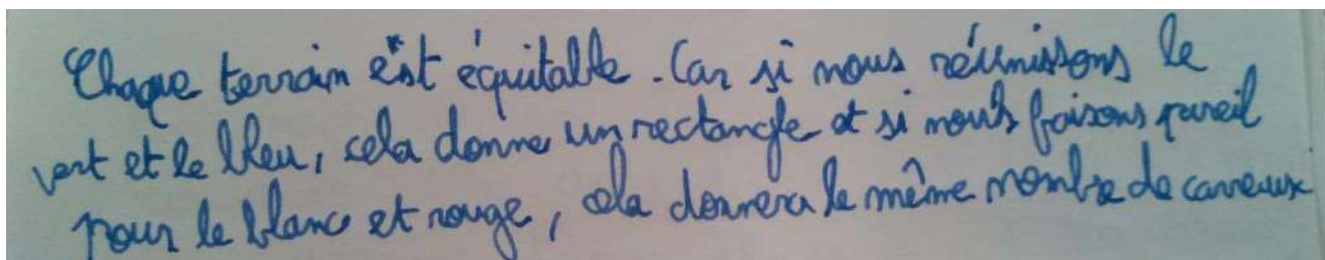 Chaque terrain est équitable. Car si nous réunissons le
vert et le bleu, cela donne un rectangle et si nous faisons pareil
pour le blanc et rouge, cela donnera le même nombre de carreaux